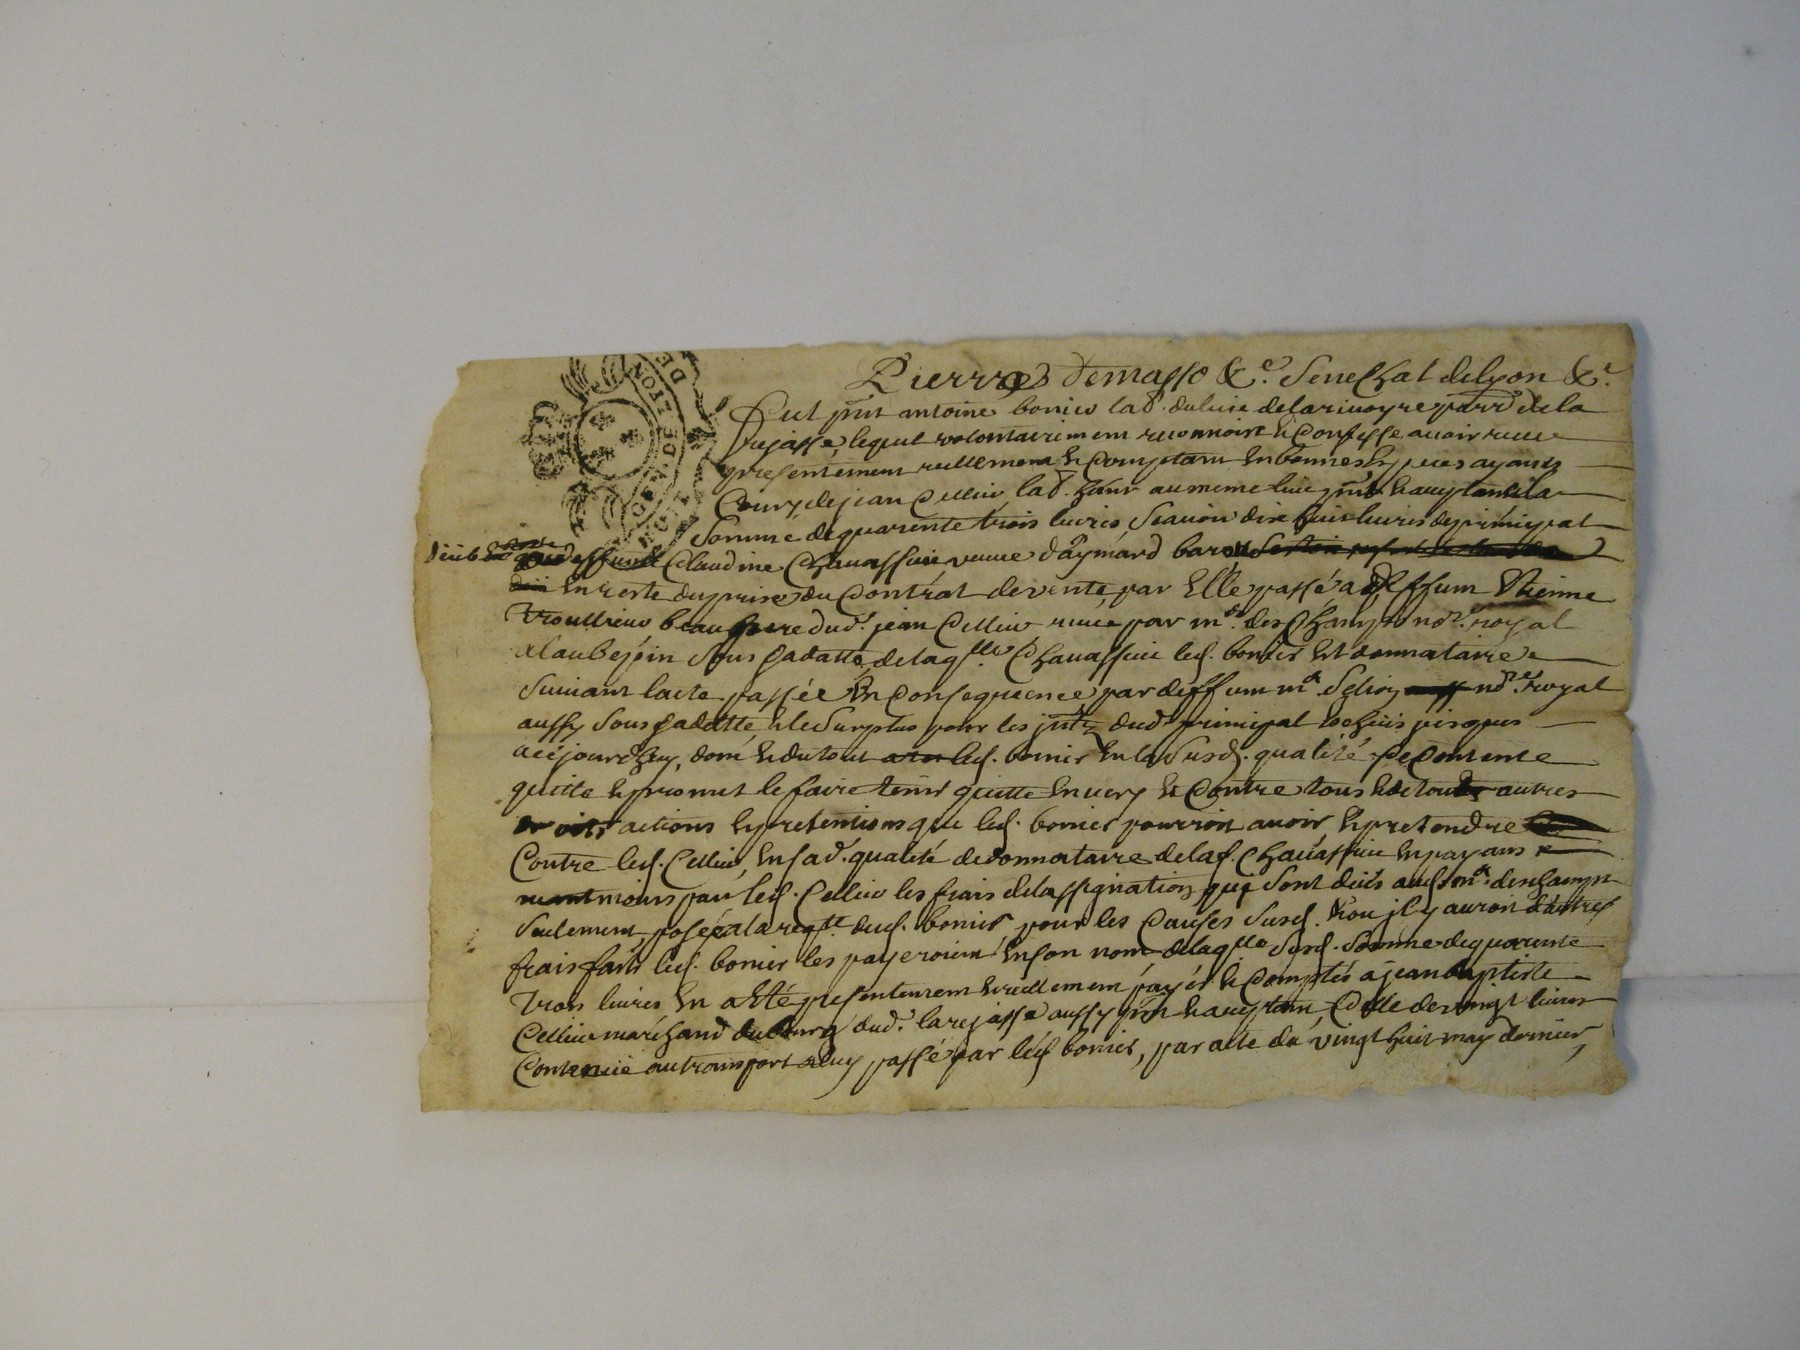 GEN. DE LYON
DE
Pierre Demasso &c. Senechal de lyon &c.
fut pnt antoine bonier lad. du lieu de la riuoyre parr. de la
rejasse, lequel volontairement reconnoist & Confesse auoir receu
presentement reellement & Comptant En bonnes Especes ayants
Cours, de jean Cellier lad. au meme lieu pnt & acceptant la
Somme de quarente trois liures Scauoir dix huit liures de principal
deüe deffunte Claudine Chauassieu veuue d'aymard barou
En reste du prix du Contrat de vente par Elle passé a deffunt Etienne
Troullieu beaupere dud. jean Cellier receu par me. des Champs nore. royal
a laubepin Sous sa datte, de laqlle. Chauassieu led. bonier Est donnataire
Suiuant lacte passée En Consequence par deffunt me. nore. royal
aussy Sous sa datte & le Surplus pour les jntz dud. principal Echeus jusques
a cejourdhuy, dont & du tout led. bonier En la Susd. qualité Se Contente
quitte & promet le faire tenir quitte Enuers & Contre tous & de toutes autres
actions & pretentions que led. bonier pourroit auoir & pretendre
Contre led. Cellier, En sad. qualité de donnataire de lad. Chauassieu En payant
moins par led. Cellier les frais de lassignation qui Sont deües aud. me. deschamps
Seulement, posée a la reqte. dud. bonier pour les Causes Susd. & ou jl y auroit d'autres
frais faits led. bonier les payeroient En son nom de laqlle Susd. Somme de quarente
Trois liures En a Eté presentement & reellement payés & Comptés a jean baptiste
Cellier marchand du bourg dud. larejasse aussy pnt & acceptant, Celle de vingt liures
Contenüe au transport a luy passé par led. bonier, par acte du vingt huit may dernier,